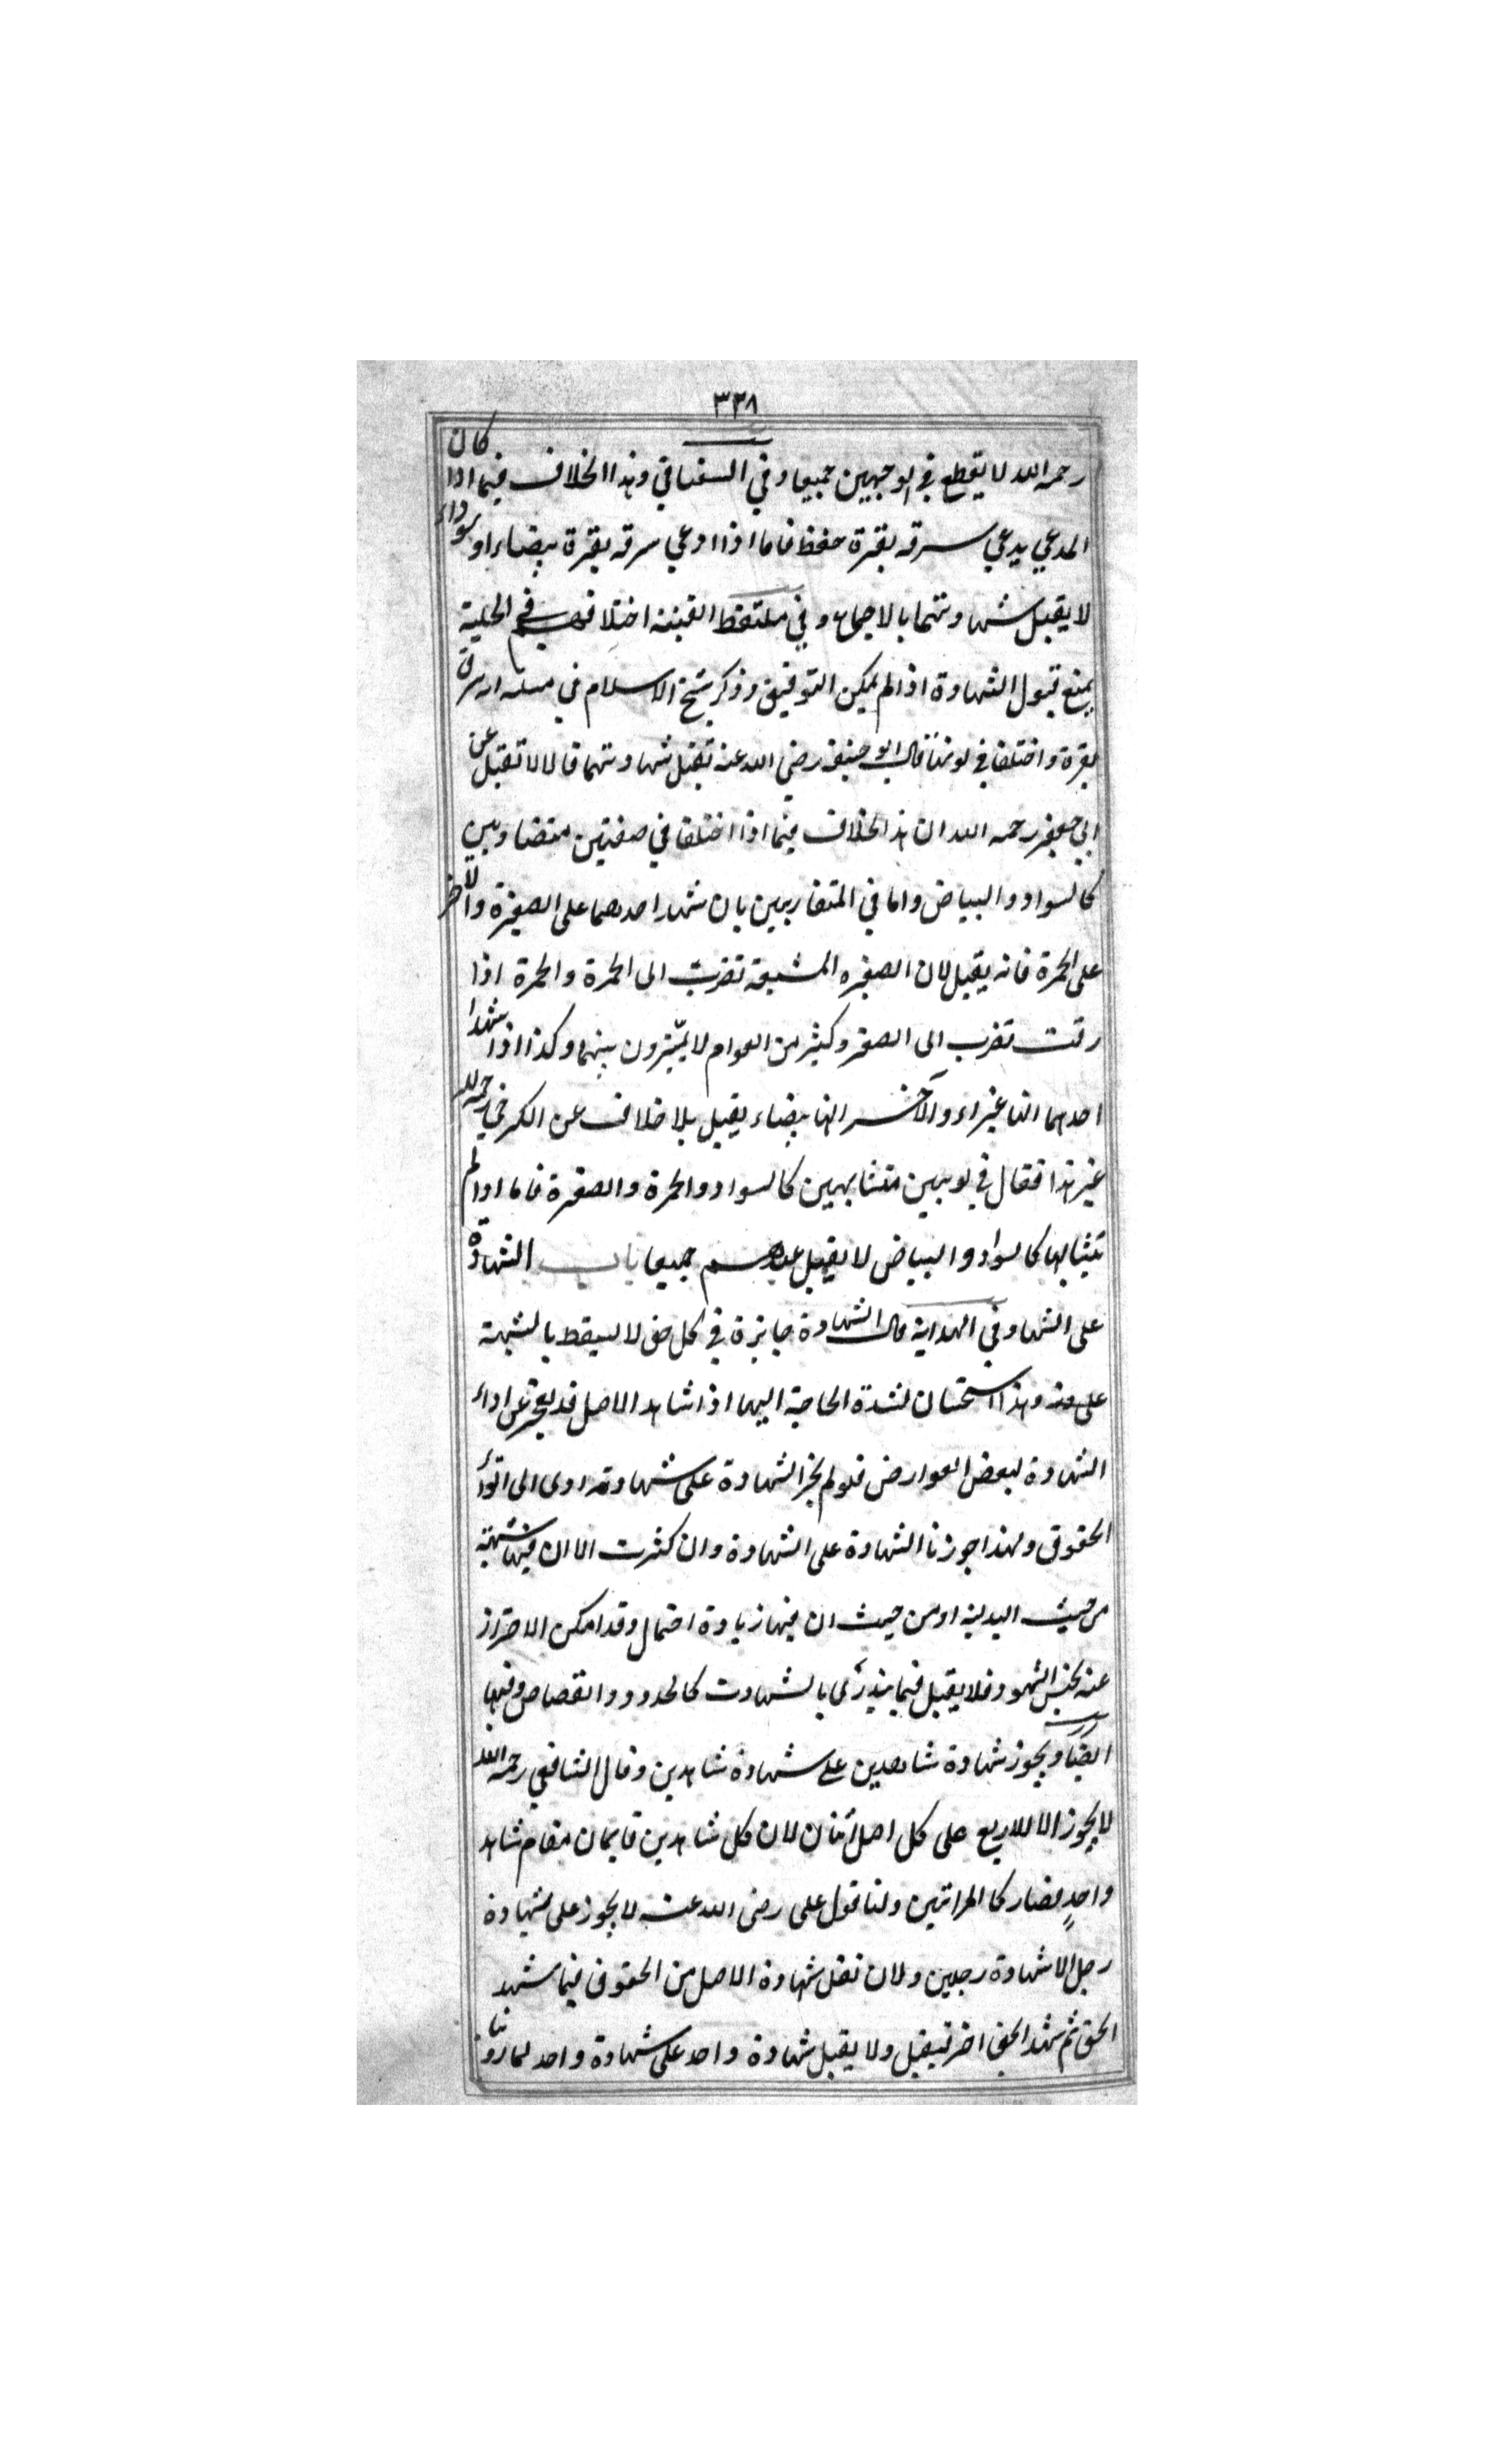 ٣٣٨
رحمه الله لا يقطع في الوجهين جميعا وفي السغناقي وهذا الخلاف فيما اذا كان
المدعي يدعي سرقه بقرة فقط فاما اذا ادعي سرقه بقرة بيضاء او سوداء
لا يقبل شهادتهما بالاجماع وفي ملتقط القنية اختلافهم في الحلية
يمنع قبول الشهادة اذا لم يمكن التوفيق وذكر شيخ الاسلام في مسئله سرق
بقرة واختلفا في لونها قال ابو حنيفه رضي الله عنه تقبل شهادتهما قالا لا تقبل عن
ابي جعفر رحمه الله ان هذا الخلاف فيما اذا اختلفا في صفتين متضادين
كالسواد والبياض واما في المتقاربين بان شهد احدهما على الصفرة والاخر
على الحمرة فانه يقبل لان الصفره المشبعة تضرب الى الحمرة والحمرة اذا
رقت تضرب الى الصفر وكثير من العوام لا يميّزون بينهما وكذا اذا شهدا
احدهما انها غبراء والآخر انها بيضاء يقبل بلا خلاف عن الكرخي رحمه الله
غير هذا فقال في لونين متشابهين كالسواد والحمرة والصفرة فاما اذا لم
يتشابها كالسواد والبياض لا يقبل عندهم جميعا باب الشهادة
على الشهاد وفي الهداية قال الشهادة جايزة في كل حق لا يسقط بالشبهة
على منه وهذا استحسان لشدة الحاجة اليها اذا شاهد الاصل قد يعجز عن اداء
الشهادة لبعض العوارض فلو لم يجز الشهادة على شهادته ادى الى اتواء
الحقوق ولهذا جوزنا الشهادة على الشهادة وان كثرت الا ان فيها شبهة
من حيث البدلية او من حيث ان فيها زيادة احتمال وقد امكن الاحتراز
عنه بجنس الشهود فلا يقبل فيما يندرئ بالشبهات كالحدود والقصاص وفيها
ايضا ويجوز شهادة شاهدين على شهادة شاهدين وقال الشافعي رحمه الله
لا يجوز الا للاربع على كل اصل اثنان لان كل شاهدين قايمان مقام شاهد
واحدٍ فصار كالمراتين ولنا قول على رضى الله عنه لا يجوز على شهادة
رجل الا شهادة رجلين ولان نقل شهادة الاصل من الحقوق فيما شهد
الحق ثم شهد الحق اخر فيقبل ولا يقبل شهادة واحد على شهادة واحد لما روينا